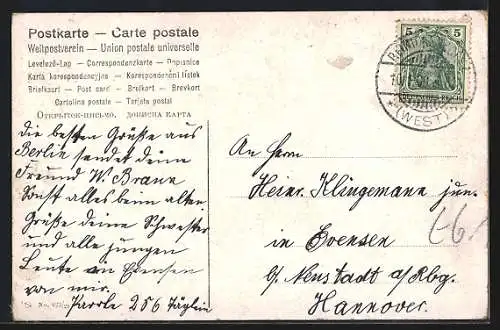 Postkarte — Carte postale
Weltpostverein — Union postale universelle
Levelező-Lap — Correspondenzkarte — Dopisnice
Karta korespondencyjna — Korespondenční lístek
Briefkaart — Post card — Brefkort — Brevkort
Cartolina postale — Tarjeta postal
Открытое письмо. Дописна карта
5 5
(WEST)
Die besten Grüße aus
Berlin sendet deine
Freund W. Braun
Sonst alles beim alten
Grüße deine Schwester
und alle jungen
Leute an Evensen
von mir.
Parole 256 Täglein
An Herrn
Heinr. Klingemann jun.
in Evensen
b/ Neustadt a/Rbg.
Hannover.